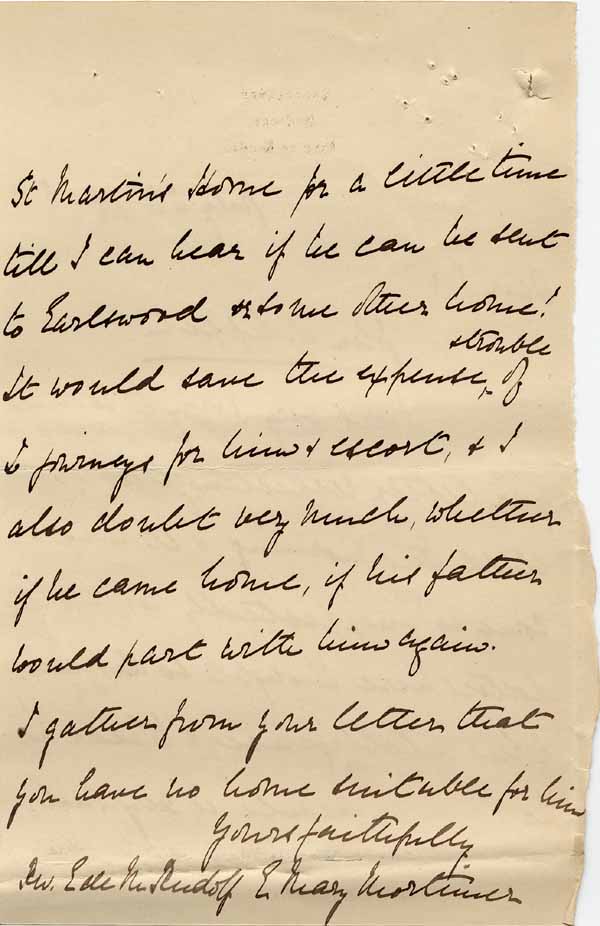 St Martin's Home for a little time
till I can hear if he can be sent
to Earlswood or some other home!
& trouble
It would save the expense, of
2 journeys for him & escort, & I
also doubt very much, whether
if he came home, if his father
would part with him again.
I gather from your letter that
you have no home suitable for him
Yours faithfully
Rev. E de M. Rudolf E. Mary Mortimer